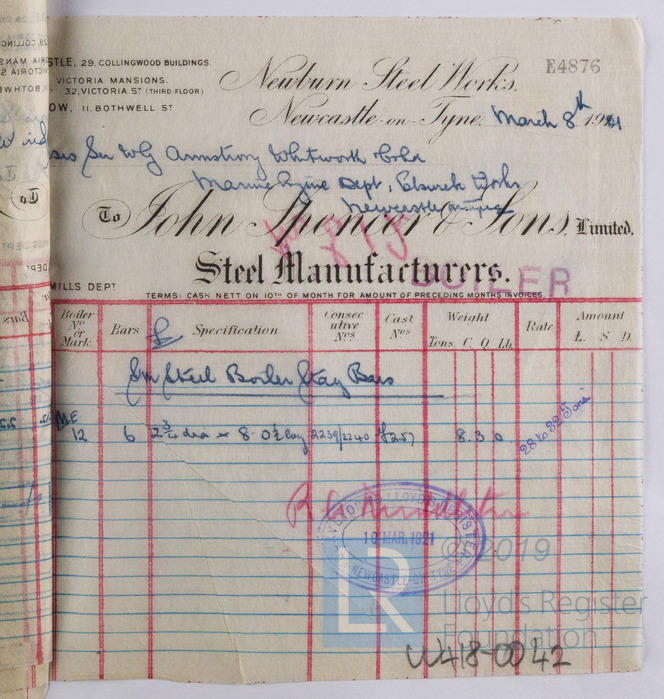 STLE, 29, COLLINGWOOD BUILDINGS.
VICTORIA MANSIONS.
32, VICTORIA ST (THIRD FLOOR)
OW, 11. BOTHWELL ST
Newburn Steel Works,
E4876
Newcastle-on-Tyne, March 8th 1921
Sir WG Armstrong Whitworth & Co Ld
Marine Engine Dept, Elswick Works
Newcastle on Tyne
To John Spencer & Sons, Limited.
Steel Manufacturers.
BOILER
MILLS DEPT
TERMS: CASH NETT ON 10TH OF MONTH FOR AMOUNT OF PRECEDING MONTHS INVOICES.
Boiler No or Mark. Bars Specification Consecutive Nos Cast Nos Weight Rate Amount
Tons. C. Q. Lb. £. S. D.
Sm Steel Boiler Stay Bars
ME
12 6 2 3/4 dia × 8 0 1/2 long 2239/2240 8.3.0. 28 to 32 Tons
LLOYD'S REGISTER
10 MAR. 1921
NEWCASTLE-ON-TYNE
LR
© 2019
Lloyd's Register
Foundation
W418-0042